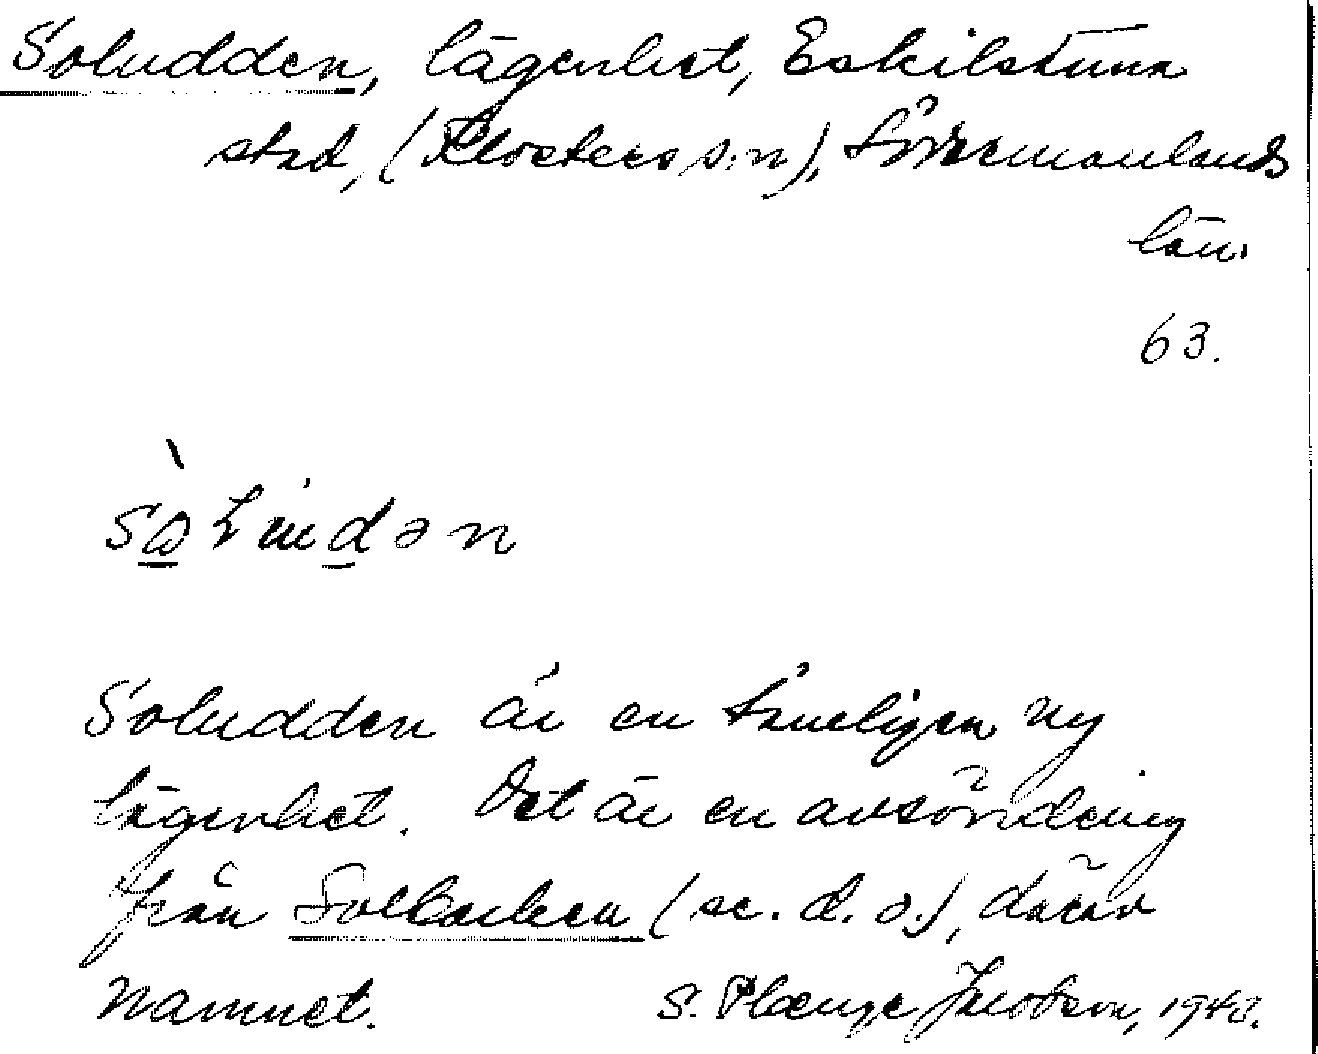 Soludden, lägenhet, Eskilstuna
stad, (Klosters s:n), Södermanlands
län.
63.
Soludden är en tämligen ny
lägenhet. Det är en avsöndring
från Solbacken (se. d. o.), därav
namnet. S. Plænge Jacobson, 1943.